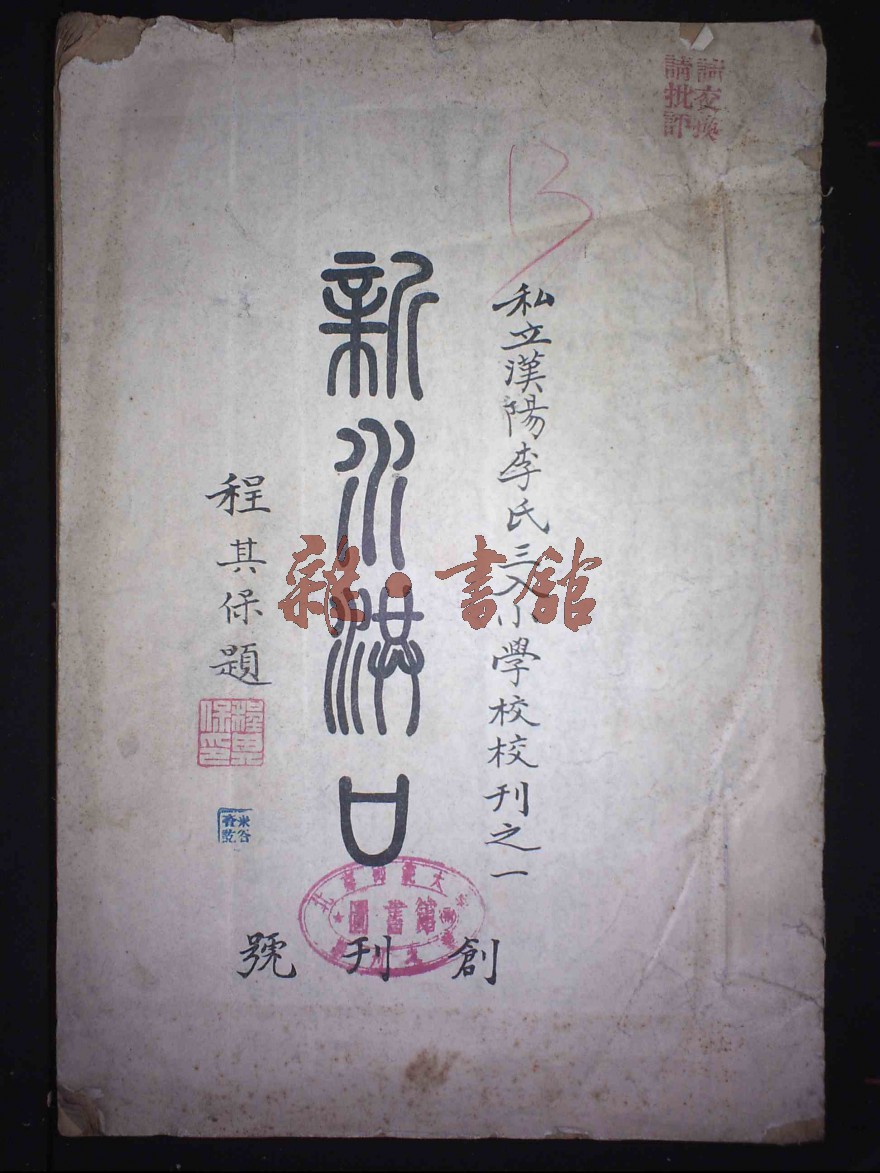 請交換
請批評
私立漢陽李氏三入小學校校刊之一
新水洪口
程其保題
創刊號
圖書館
雜·書館